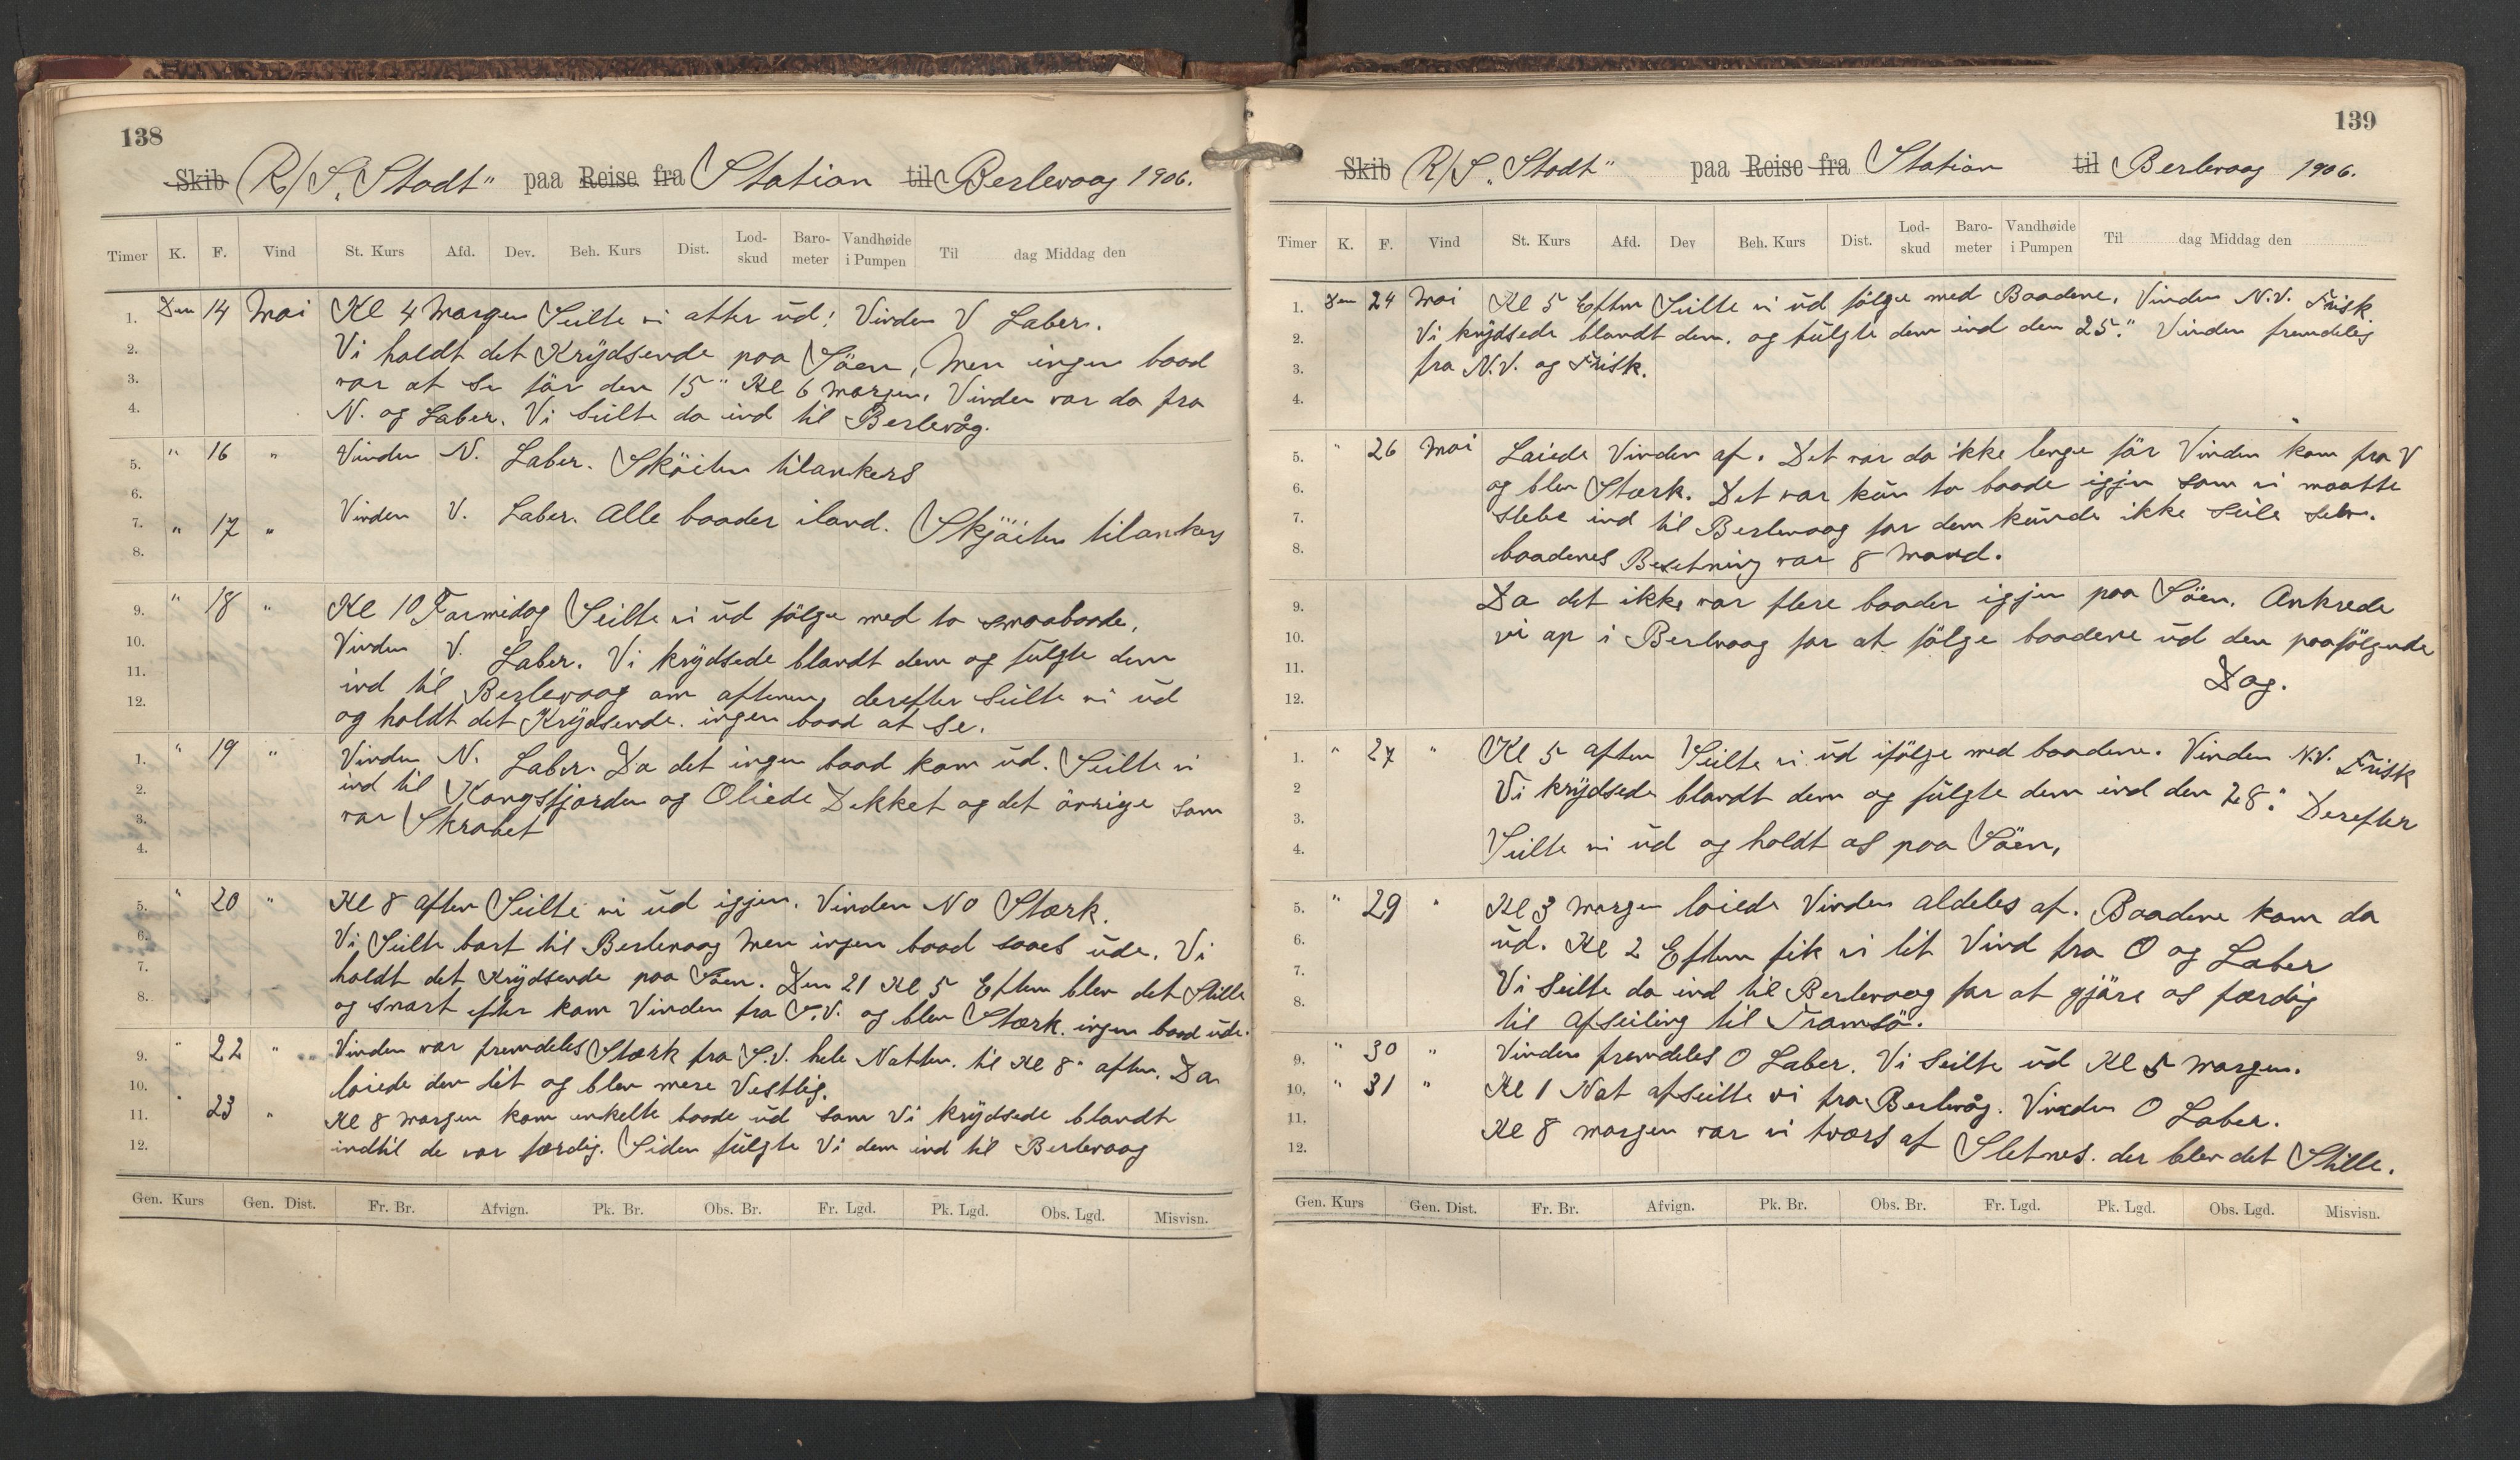 138
Skib R/S „Stadt" paa Reise fra Station til Berlevaag 1906.
Timer K. F. Vind St. Kurs Afd. Dev. Beh. Kurs Dist. Lod-skud Baro-meter Vandhøide i Pumpen Til dag Middag den
1. Den 14 Mai Kl 4 Morgen Seilte vi atter ud! Vinden V Laber.
2. Vi holdt det Krydsende paa Söen, Men ingen baad
3. var at se för den 15" Kl 6 morgen. Vinden var da fra
4. N. og Laber. Vi Seilte da ind til Berlevåg.
5. " 16 " Vinden N. Laber. Sköiten tilankers
6.
7. " 17 " Vinden V. Laber. Alle baader iland. Skjöiten tilankers
8.
9. " 18 " Kl 10 Formidag Seilte vi ud fölge med to smaabaade.
10. Vinden V. Laber. Vi krydsede blandt dem og fulgte dem
11. ind til Berlevaag om aftenen, derefter Seilte vi ud
12. og holdt det Krydsende. ingen baad at se.
1. " 19 " Vinden N. Laber. Da det ingen baad kom ud. Seilte vi
2. ind til Kongsfjorden og Oliede Dekket og det övrige som
3. var Skrabet
4.
5. " 20 " Kl 8 aften Seilte vi ud igjen. Vinden NO Stærk.
6. Vi Seilte bort til Berlevaag Men ingen baad saaes ude. Vi
7. holdt det Krydsende paa Söen. Den 21 Kl 5 Eftem blev det Stille
8. og snart efter kom Vinden fra S.V. og blev Stærk. ingen baad ude.
9. " 22 " Vinden var fremdeles Stærk fra S.V. hele Natten. til Kl 8" aften. Da
10. løiede den lit og blev mere Vestlig.
11. " 23 " Kl 8 morgen kom enkelte baade ud som Vi krydsede blandt
12. indtil de var færdig. Siden fulgte Vi dem ind til Berlevaag
Gen. Kurs Gen. Dist. Fr. Br. Afvign. Pk. Br. Obs. Br. Fr. Lgd. Pk. Lgd. Obs. Lgd. Misvisn.
139
Skib R/S „Stadt" paa Reise fra Station til Berlevaag 1906.
Timer K. F. Vind St. Kurs Afd. Dev Beh. Kurs Dist. Lod-skud Baro-meter Vandhøide i Pumpen Til dag Middag den
1. Den 24 Mai Kl 5 Eftem Seilte vi ud fölge med Baadene. Vinden N.V. Frisk.
2. Vi krydsede blandt dem. og fulgte dem ind den 25." Vinden fremdeles
3. fra N.V. og Frisk.
4.
5. " 26 Mai Løiede Vinden af. Det var da ikke lenge för Vinden kom fra V
6. og blev Stærk. Det var kun to baade igjen som vi maatte
7. slebe ind til Berlevaag for dem kunde ikke Seile selv.
8. baadenes Besetning var 8 Mand.
9. Da det ikke var flere baader igjen paa Söen. Ankrede
10. vi op i Berlevaag for at fölge baadene ud den paafölgende
11. Dag.
12.
1. " 27 " Kl 5 aften Seilte vi ud ifölge med baadene. Vinden N.V. Frisk
2 Vi krydsede blandt dem og fulgte dem ind den 28." Derefter
3.
4. Seilte vi ud og holdt os paa Söen,
5. " 29 " Kl 3 morgen løiede Vinden aldeles af. Baadene kom da
6. ud. Kl 2 Eftem fik vi lit Vind fra O og Laber
7. Vi Seilte da ind til Berlevaag for at gjöre os færdig
8. til Afseiling til Tromsö.
9. " 30 " Vinden fremdeles O Laber. Vi Seilte ud Kl 5 Morgen.
10. " 31 " Kl 1 Nat afseilte vi fra Berlevåg. Vinden O Laber.
11. Kl 8 morgen var vi tværs af Sletnes. der blev det Stille.
12.
Gen. Kurs Gen. Dist. Fr. Br. Afvign. Pk. Br. Obs. Br. Fr. Lgd. Pk. Lgd. Obs. Lgd. Misvisn.